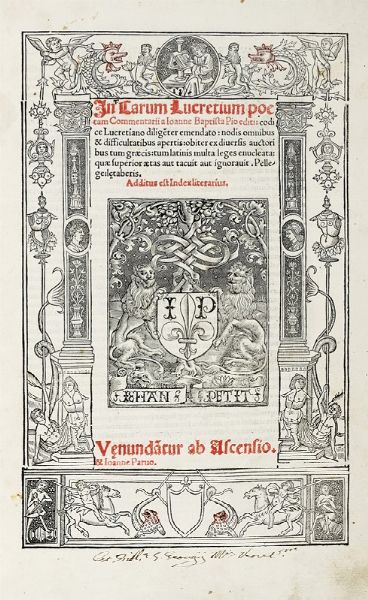 In Carum Lucretium poe
tam Commentarii a Ioanne Baptista Pio editi: codi
ce Lucretiano diligẽter emendato: nodis omnibus
& difficultatibus apertis: obiter ex diuersis auctori
bus tum græcis: tum latinis multa leges enucleata:
quæ superior ætas aut tacuit aut ignorauit. Pelle-
ge: lętaberis.
Additus est Index literarius.
I P
IEHAN PETIT
Vęnundãtur ab Ascensio.
& Ioanne Paruo.
S. Georgij